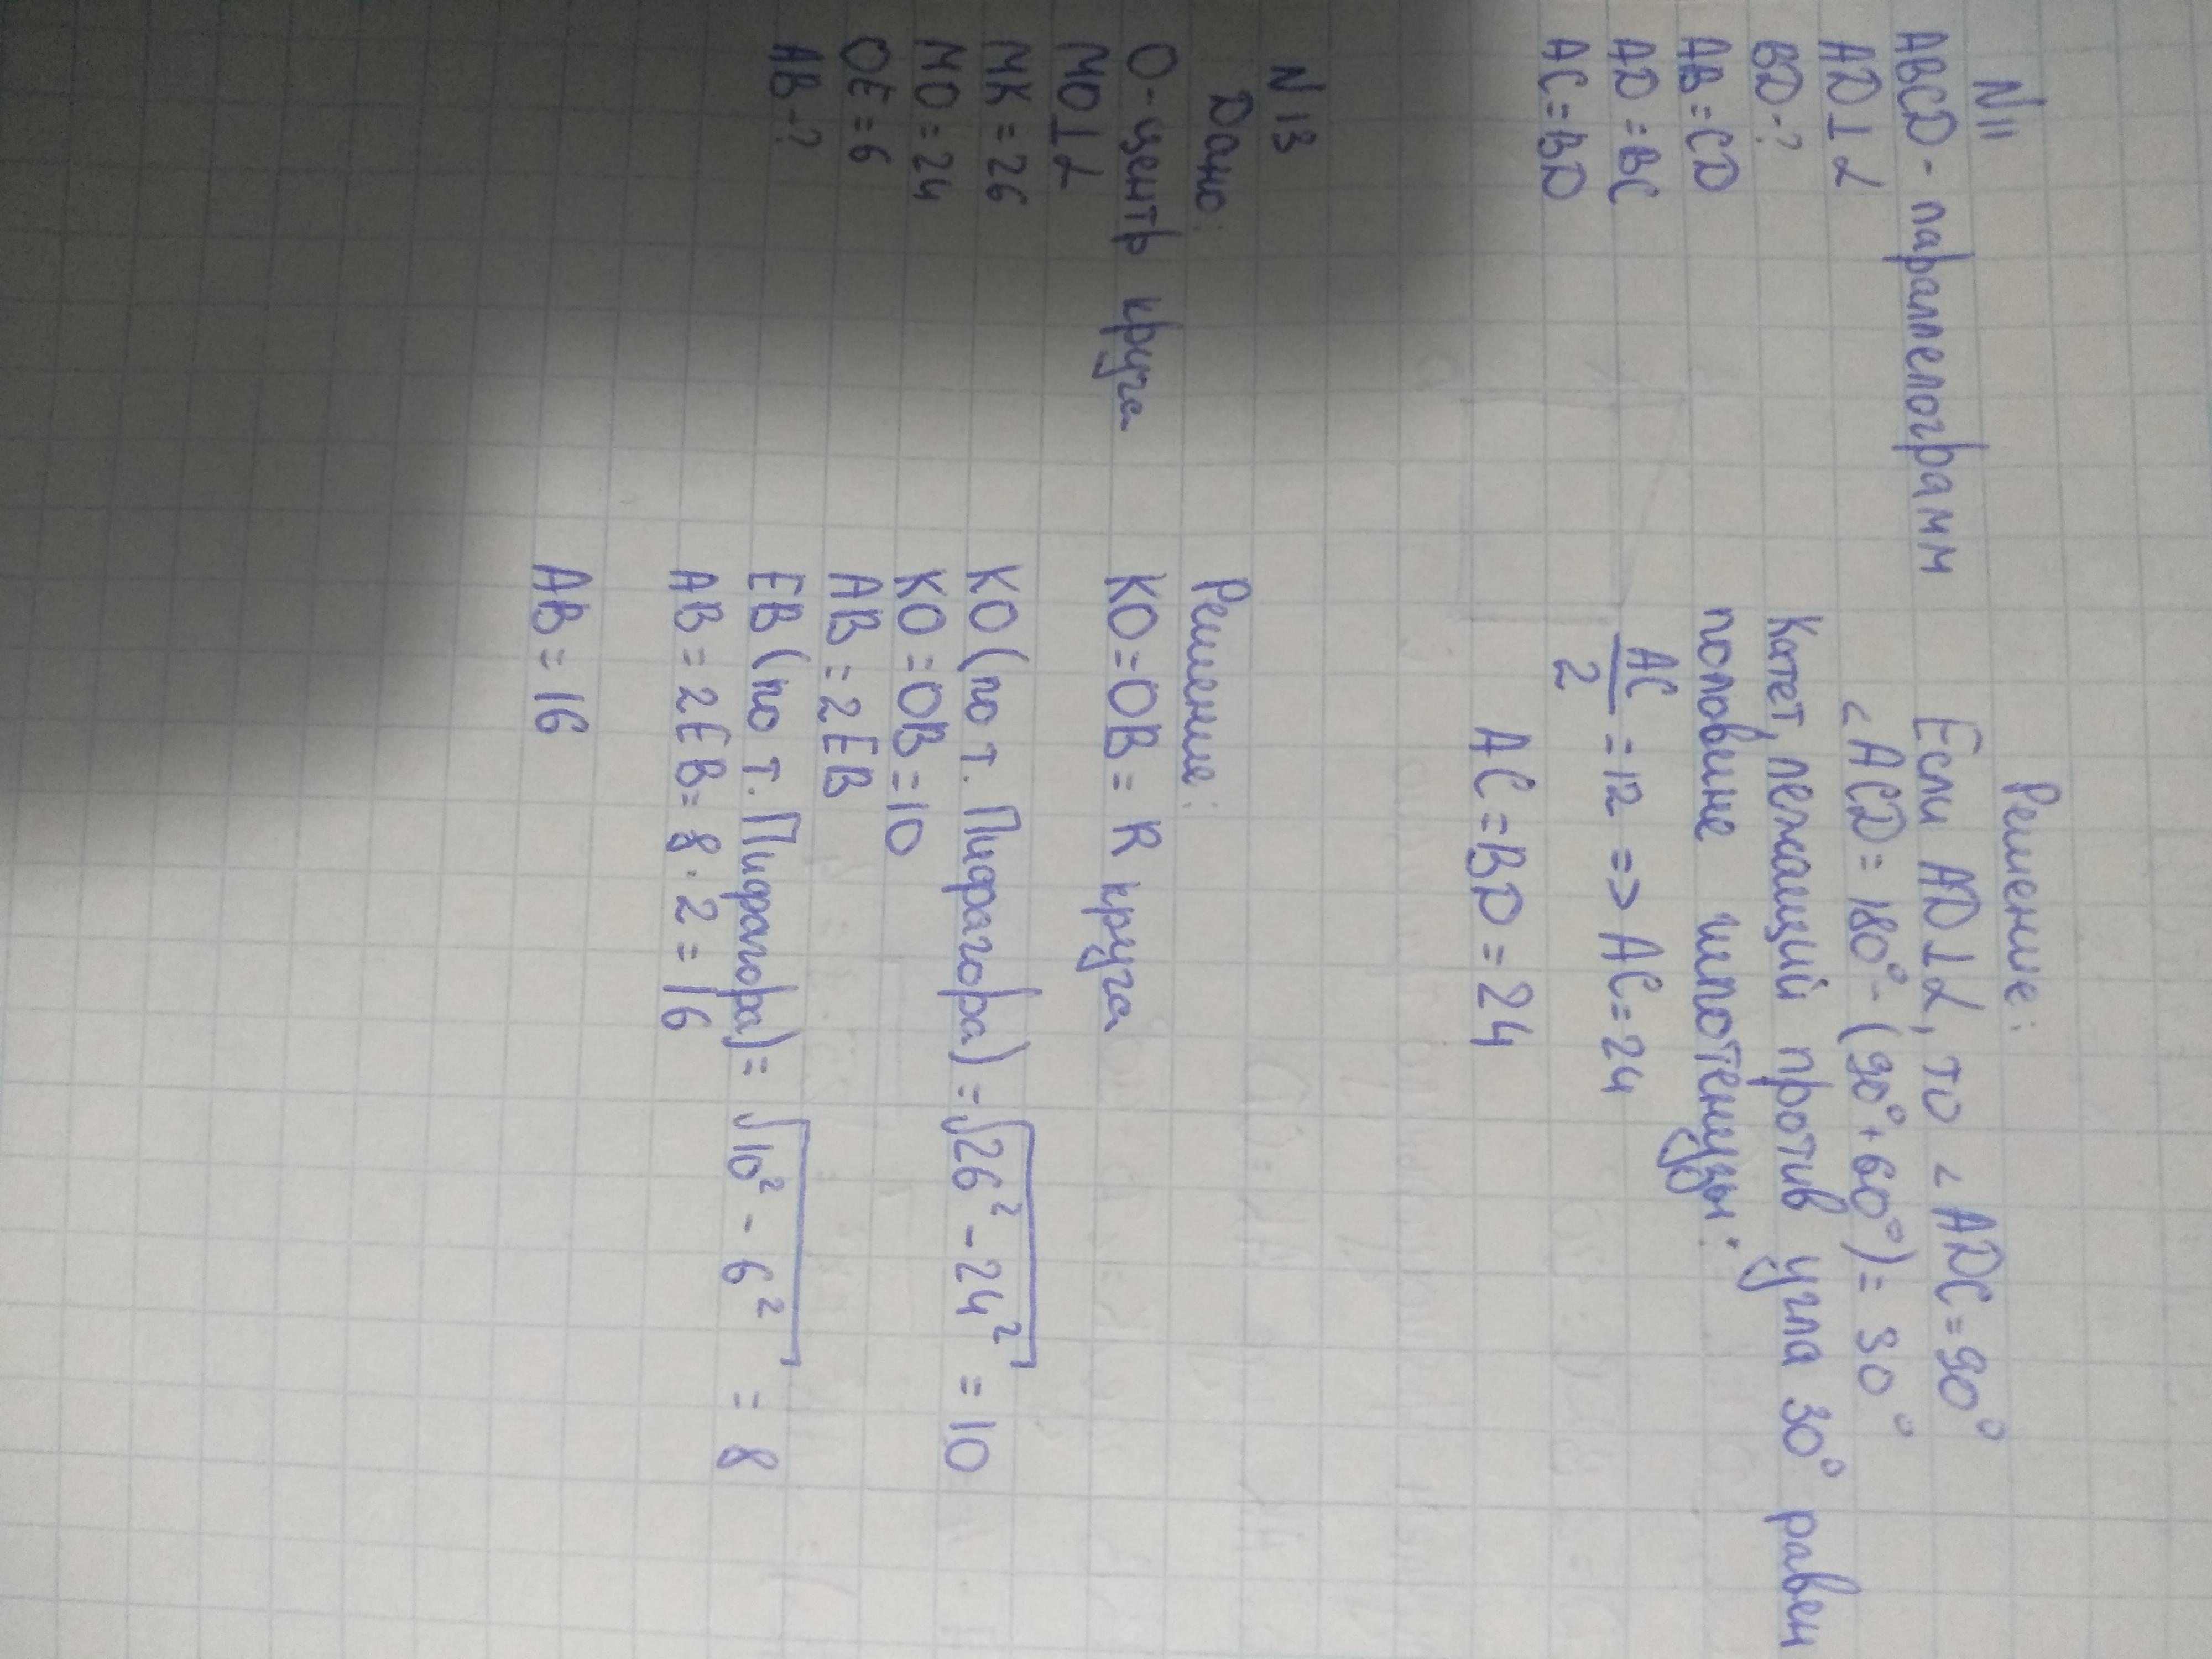 N11
ABCD - параллелограмм
AD⊥α
BD-?
AB=CD
AD=BC
AC=BD
Решение:
Если AD⊥α, то ∠ADC=90°
∠ACD=180°-(90°+60°)=30°
Катет, лежащий против угла 30° равен
половине гипотенузы:
AC/2=12 => AC=24
AC=BD=24
N13
Дано:
O-центр круга
MO⊥α
MK=26
MO=24
OE=6
AB-?
Решение:
KO=OB=R круга
KO(по т. Пифагора)=√26²-24²=10
KO=OB=10
AB=2EB
EB(по т. Пифагора)=√10²-6²=8
AB=2EB=8·2=16
AB=16